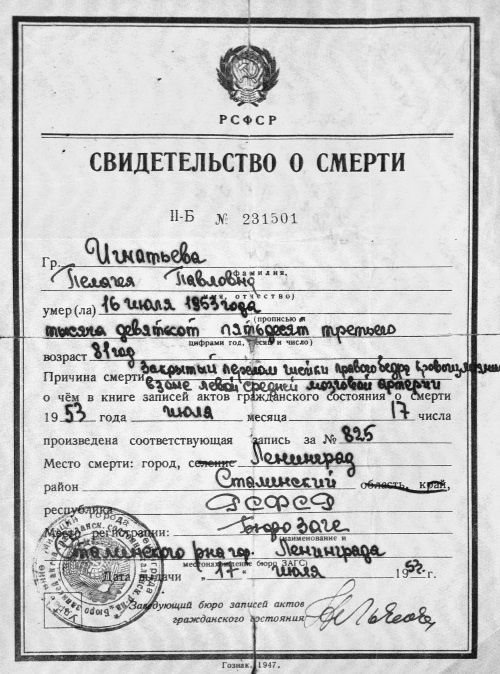 РСФСР
СВИДЕТЕЛЬСТВО О СМЕРТИ
II-Б № 231501
Гр. Игнатьева
фамилия,
Пелагея Павловна
имя, отчество)
умер(ла) 16 июля 1953 года
(прописью и
тысяча девятьсот пятьдесят третьего
цифрами год, месяц и число)
возраст 81 год
Причина смерти закрытый перелом шейки правого бедра, кровоизлияние
в зоне левой средней мозговой артерии
о чём в книге записей актов гражданского состояния о смерти
1953 года июля месяца 17 числа
произведена соответствующая запись за № 825
Место смерти: город, селение Ленинград
район Сталинский область, край,
республика РСФСР
Место регистрации: Бюро Загс
(наименование и
Сталинского р-на гор. Ленинграда
местонахождение бюро ЗАГС)
Дата выдачи „17“ июля 1953 г.
Заведующий бюро записей актов
гражданского состояния
Гознак. 1947.